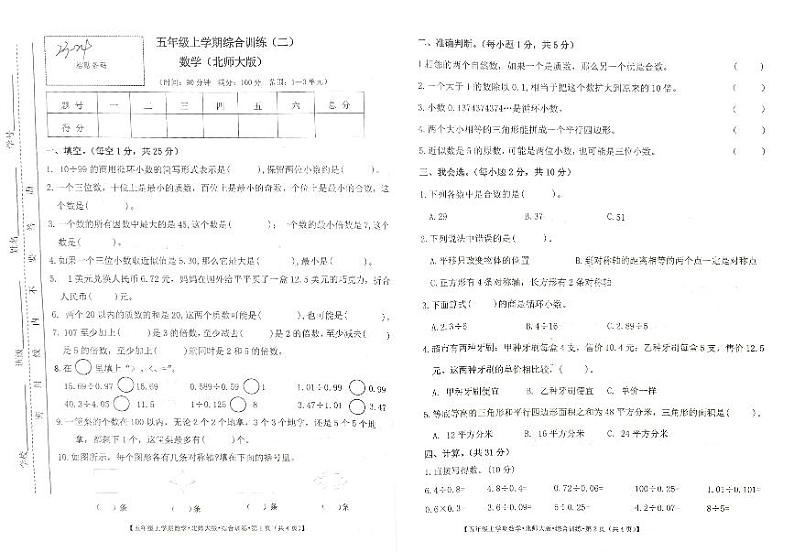 23-24
粘贴条码
五年级上学期综合训练（二）
数学（北师大版）
（时间：90分钟 满分：100分 范围：1—3单元）
题号 一 二 三 四 五 六 总分
得分
一、填空。（每空1分，共25分）
1. 10÷99的商用循环小数的简写形式表示是（ ），保留两位小数约是（ ）。
2. 一个三位数，十位上是最小的质数，百位上是最小的奇数，个位上是最小的合数，这
个数是（ ）。
3. 一个数的所有因数中最大的是45，这个数是（ ）；一个数的最小倍数是7，这个
数是（ ）。
4. 如果一个三位小数取近似值是5.30，那么它最大是（ ），最小是（ ）。
5. 1美元兑换人民币6.72元，妈妈在国外给平平买了一盒12.5美元的巧克力，折合
人民币（ ）元。
6. 两个20以内的质数的和是20，这两个质数可能是（ ），也可能是（ ）。
7. 107至少加上（ ）是3的倍数，至少减去（ ）是2的倍数，至少减去（ ）
是5的倍数，至少加上（ ）就同时是2和5的倍数。
8. 在○里填上“＞、＜、=”。
15.69÷0.97○15.69 0.589÷0.59○1 1.01÷0.99○0.99
40.3÷4.05○11.5 1÷0.125○8 3.47÷1.01○3.47
9. 一筐梨的个数在100以内，无论2个2个地拿，3个3个地拿，还是5个5个地
拿，都剩下1个，这筐梨最多有（ ）个。
10. 如图所示，每个图形各有几条对称轴?填在下面的括号里。
（ ）条 （ ）条 （ ）条 （ ）条
【五年级上学期数学•北师大版•综合训练•第1页（共4页）】
学号
姓名
班级
学校
密封线内不要答
二、准确判断。（每小题1分，共5分）
1. 相邻的两个自然数，如果一个是质数，那么另一个就是合数。 （ ）
2. 一个大于1的数除以0.1，相当于把这个数扩大到原来的10倍。 （ ）
3. 小数0.1374374374…是循环小数。 （ ）
4. 两个大小相等的三角形能拼成一个平行四边形。 （ ）
5. 近似数是5的原数，可能是两位小数，也可能是三位小数。 （ ）
三、我会选。（每小题2分，共10分）
1. 下列各数中是合数的是（ ）。
A. 29 B. 37 C. 51
2. 下列说法中错误的是（ ）。
A. 平移只改变物体的位置 B. 到对称轴的距离相等的两个点一定是对称点
C. 正方形有4条对称轴，长方形有2条对称轴
3. 下面算式（ ）的商是循环小数。
A. 2.3÷6 B. 4÷16 C. 2.89÷5
4. 超市有两种牙刷：甲种牙刷每盒4支，售价10.4元；乙种牙刷每盒5支，售价12.5
元。这两种牙刷的单价相比较，（ ）。
A. 甲种牙刷便宜 B. 乙种牙刷便宜 C. 单价一样
5. 等底等高的三角形和平行四边形面积之和为48平方分米，三角形的面积是（ ）。
A. 12平方分米 B. 16平方分米 C. 24平方分米
四、计算。（共31分）
1. 直接写得数。（10分）
6.4÷0.8= 4.8÷0.4= 0.72÷0.06= 100÷0.25= 1.01÷0.101=
0.6×0.3= 3.6÷0.09= 5÷0.25= 0.32÷0.4= 0÷5.5=
【五年级上学期数学•北师大版•综合训练•第2页（共4页）】